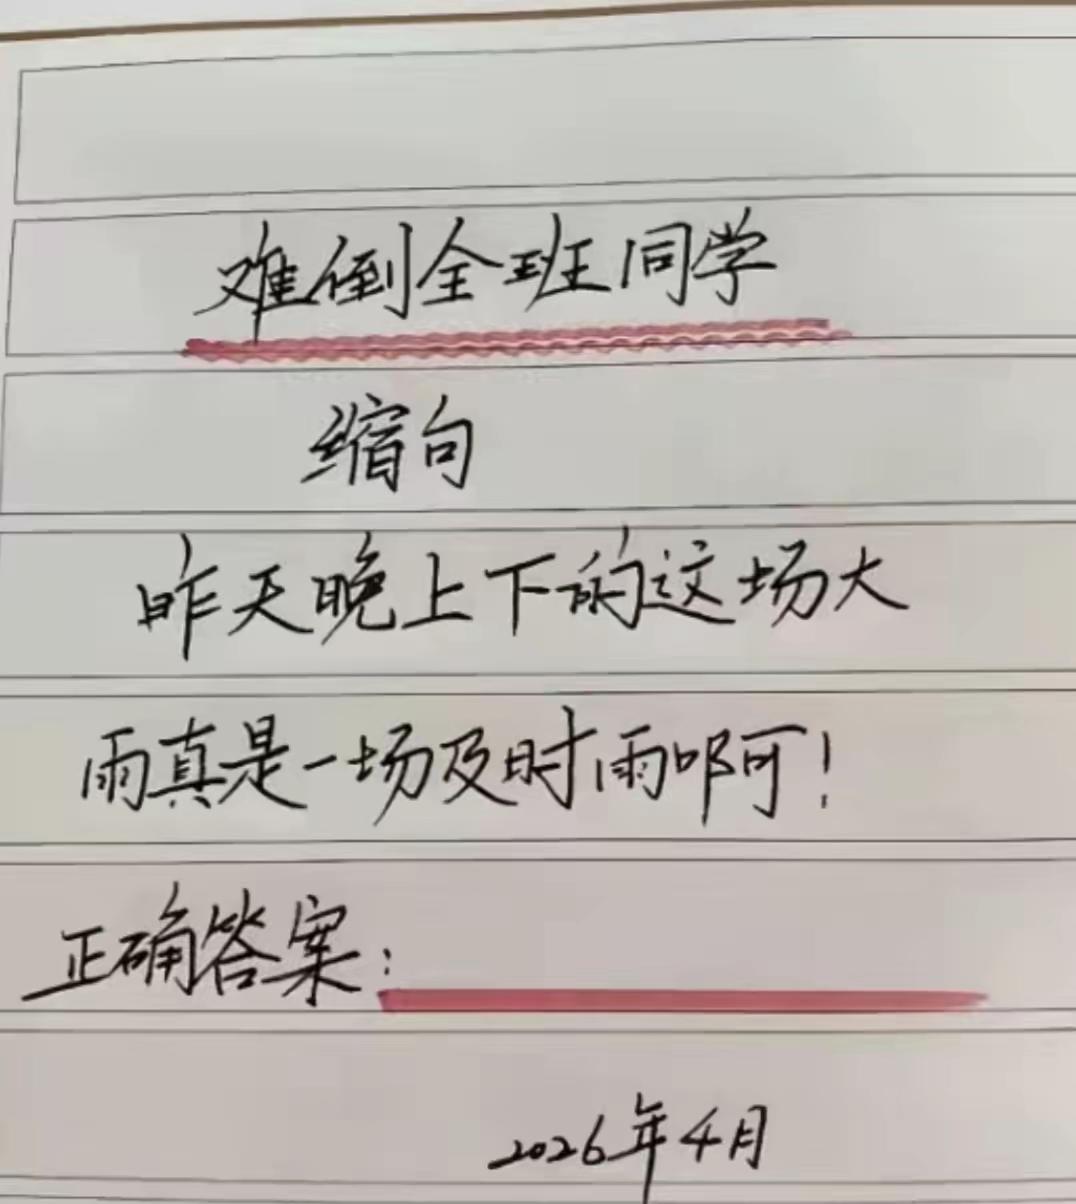 难倒全班同学
缩句
昨天晚上下的这场大
雨真是一场及时雨啊!
正确答案:
2026年4月